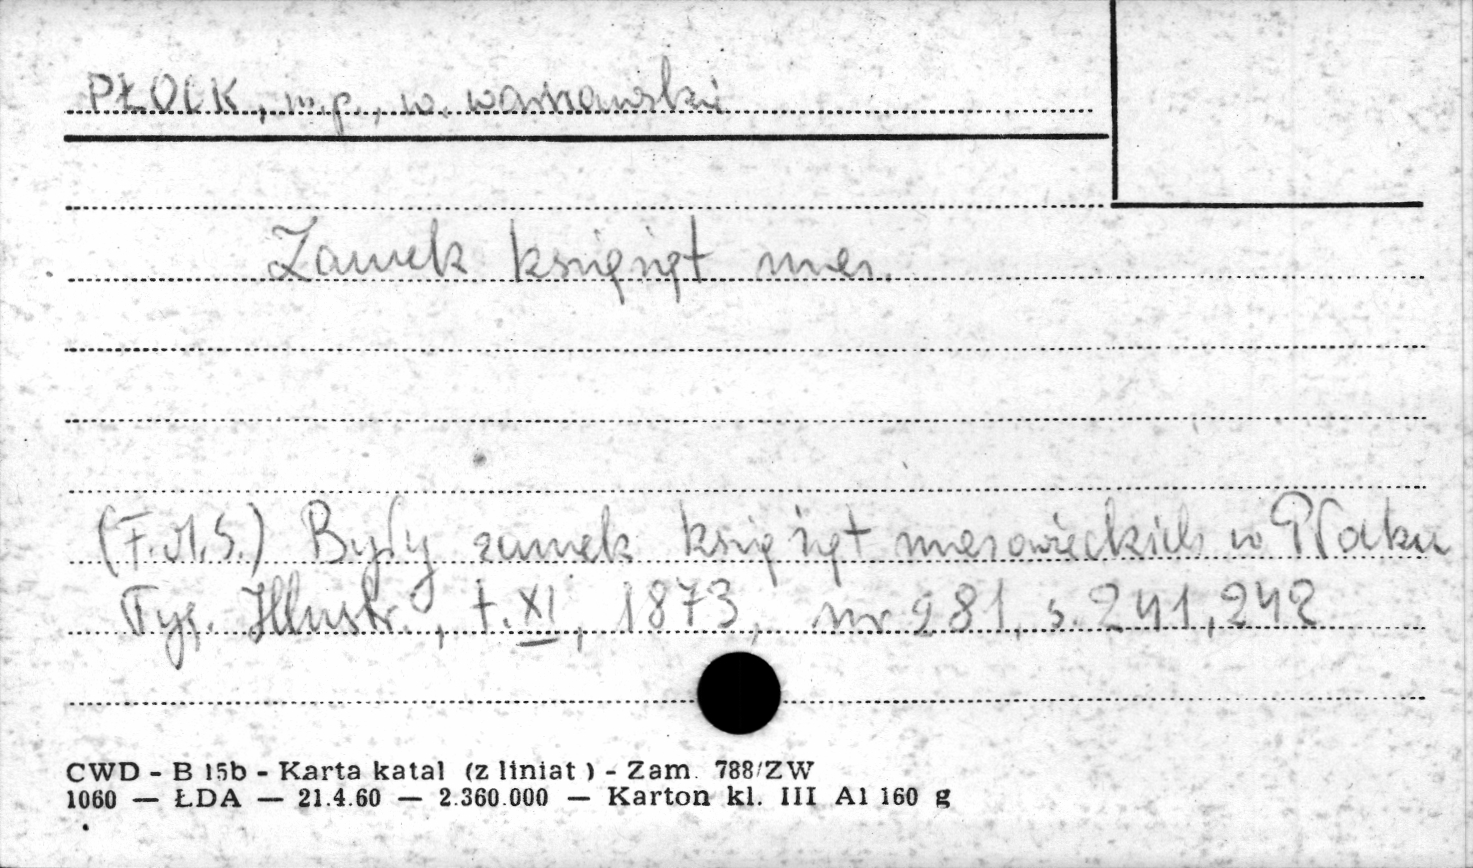 PŁOCK, m.p., w. warszawskie
Zamek książąt maz.
(F.M.S.) Były zamek książąt mazowieckich w Płocku
Tyg. Illustr., t. XI, 1873, nr 281, s. 241, 242
CWD - B 15b - Karta katal (z liniat) - Zam. 788/ZW
1060 — ŁDA — 21.4.60 — 2.360.000 — Karton kl. III A1 160 g